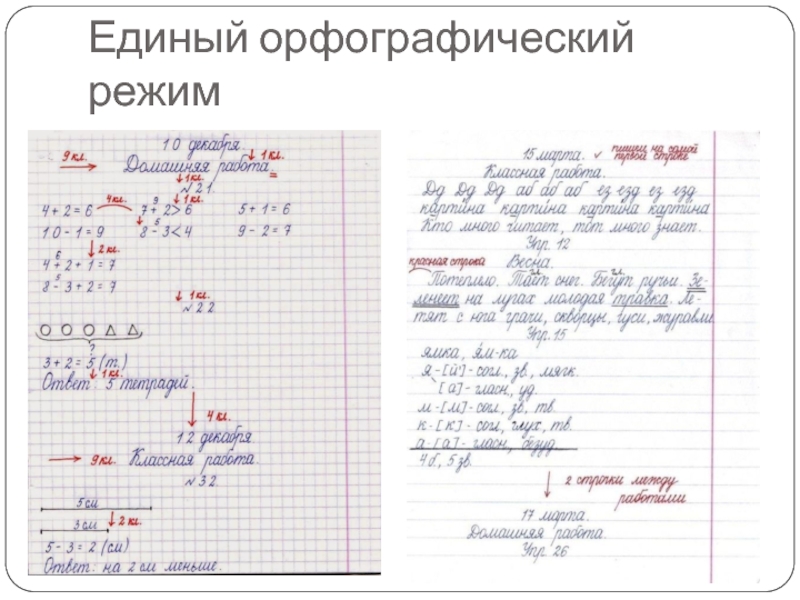 Единый орфографический
режим
10 декабря.
9 кл.
↓ 1 кл.
Домашняя работа.
↓ 1 кл.
№ 21.
4 кл.
9
↓ 1 кл.
4 + 2 = 6 7 + 2 > 6 5 + 1 = 6
5
10 - 1 = 9 8 - 3 < 4 9 - 2 = 7
↓ 2 кл.
6
4 + 2 + 1 = 7
5
8 - 3 + 2 = 7
↓ 1 кл.
№ 22
?
3 + 2 = 5 (т.)
↓ 1 кл.
Ответ: 5 тетрадей.
↓ 4 кл.
12 декабря
→ 9 кл. Классная работа.
№ 32.
5 см
3 см ↓ 2 кл.
5 - 3 = 2 (см)
Ответ: на 2 см меньше.
15 марта. пишем на самой
первой строке
Классная работа.
Дд Дд Дд аб аб аб ез езд ез езд
картина картина картина картина
Кто много читает, тот много знает.
Упр. 12
красная строка Весна.
Потеплело. Тает снег. Бегут ручьи. Зе-
ленеет на лугах молодая травка. Ле-
тят с юга грачи, скворцы, гуси, журавли.
Упр. 15
ямка, ям-ка
я - [й'] - согл., зв., мягк.
[а] - гласн., уд.
м - [м] - согл., зв., тв.
к - [к] - согл., глух., тв.
а - [а] - гласн., безуд.
4 б., 5 зв.
↓ 2 строчки между
работами
17 марта.
Домашняя работа.
Упр. 26